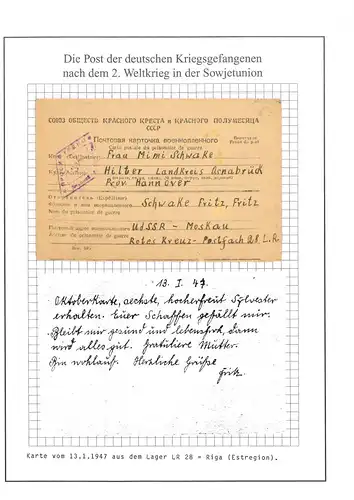 Die Post der deutschen Kriegsgefangenen
nach dem 2. Weltkrieg in der Sowjetunion
СОЮЗ ОБЩЕСТВ КРАСНОГО КРЕСТА и КРАСНОГО ПОЛУМЕСЯЦА
СССР
Почтовая карточка военнопленного
Carte postale du prisonnier de guerre
Frau Mimi Schwake
Hilter Landkreis Osnabrück
Prov. Hannover
Schwake Fritz, Fritz
UdSSR - Moskau
Rotes Kreuz - Postfach 28, L.R.
13. I. 47.
Oktoberkarte, sechste, hocherfreut Sylvester
erhalten. Euer Schaffen gefällt mir.
Bleibt mir gesund und lebensfroh, dann
wird alles gut. Gratuliere Mutter.
Bin wohlauf. Herzliche Grüße
Fritz
Karte vom 13.1.1947 aus dem Lager LR 28 = Riga (Estregion).